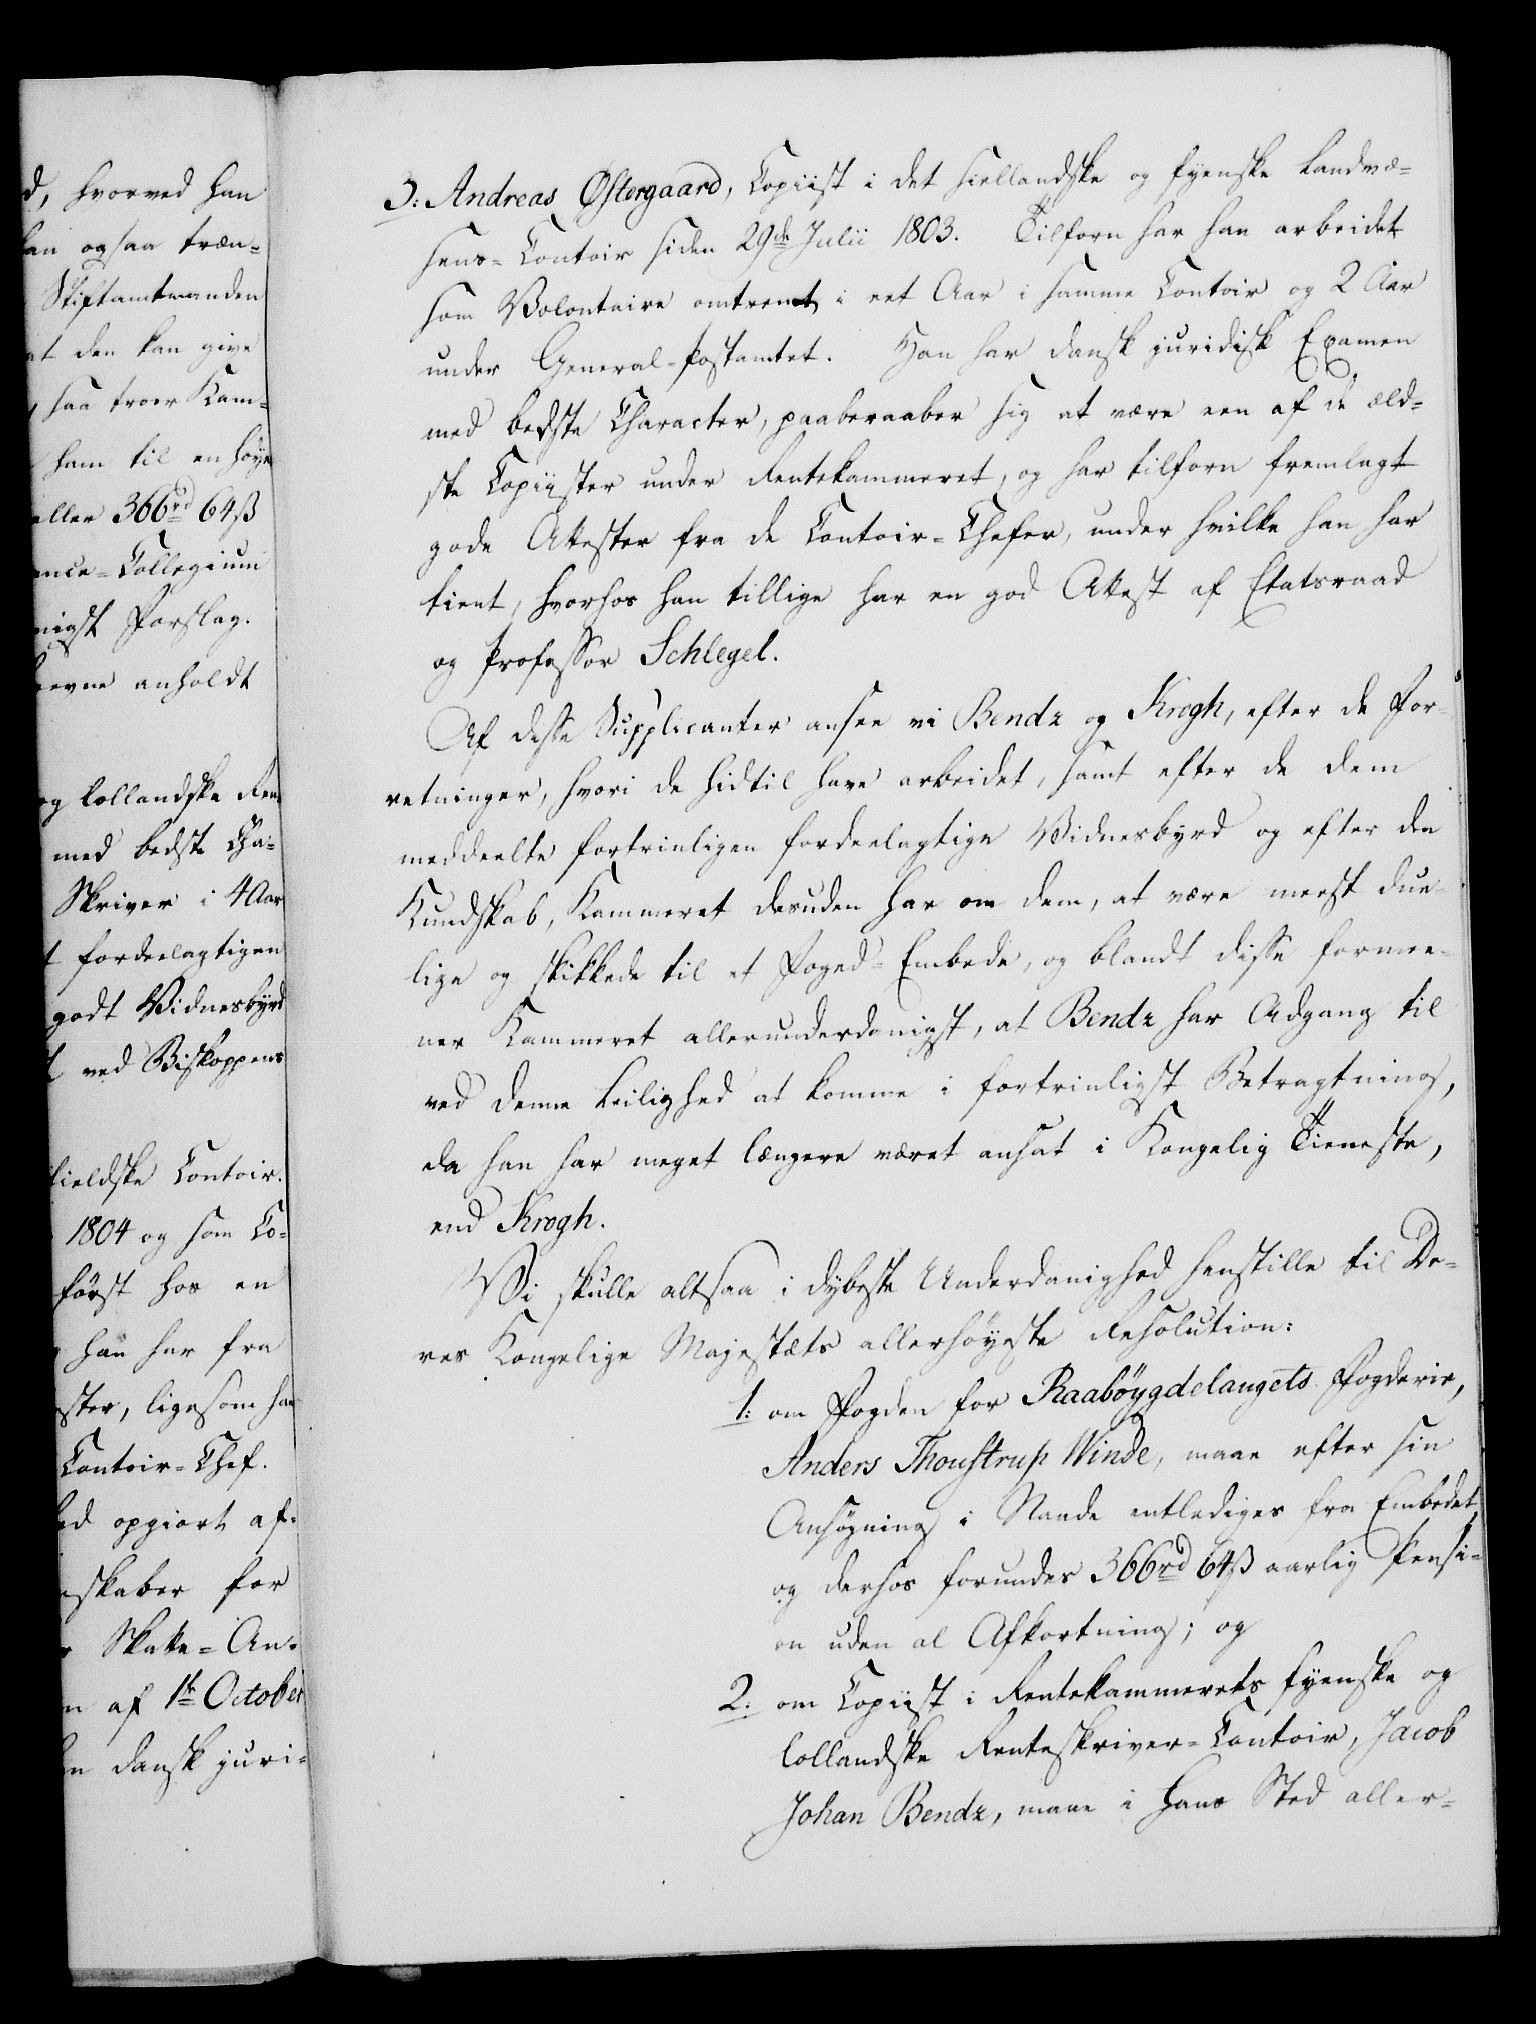 d, hvorved han
han ogsaa træn-
Stiftamtmanden
at den kan give
saa troer Kam-
ham til en høye
eller 366rd 64ß
ance-Collegium
nigst Forslag.
anholdt
og lollandske Ren
med bedste Cha-
Skriver i 4 Aar
t fordeelagtigen
godt Vidnesbyrd
ved Biskoppens
fieldske Contoir.
1804 og som Co-
først hos en
han har fra
ster, ligesom han
Contoir-Chef.
ed opgiort af-
skaber for
Skatte-An-
n af 1te October
n dansk juri-
3: Andreas Østergaard, Copiist i det siellandske og fyenske Landvæ-
sens-Contoir siden 29de Julii 1803. Tilforn har han arbeidet
som Volontaire omtrent i eet Aar i samme Contoir og 2 Aar
under General-Postamtet. Han har dansk juridisk Examen
med bedste Character, paaberaaber sig at være een af de æld-
ste Copiister under Rentekammeret, og har tilforn fremlagt
gode Attester fra de Contoir-Chefer, under hvilke han har
tient, hvorhos han tillige har en god Attest af Etatsraad
og Professor Schlegel.
Af disse Supplicanter ansee vi Bendz og Krogh, efter de For-
retninger, hvori de hidtil have arbeidet, samt efter de dem
meddeelte fortrinligen fordeelagtige Vidnesbyrd og efter den
Kundskab, Kammeret desuden har om dem, at være meest due-
lige og skikkede til et Foged-Embede, og blandt disse formee-
ner Kammeret allerunderdanigst, at Bendz har Adgang til
ved denne Leilighed at komme i fortrinligst Betragtning,
da han har meget længere været ansat i Kongelig Tieneste,
end Krogh.
Vi skulle altsaa i dybeste Underdanighed henstille til De-
res Kongelige Majestæts allerhøyeste Resolution:
1: om Fogden for Raabøygdelaugets Fogderie,
Anders Thoustrup Winde, maae efter sin
Ansøgning i Naade entlediges fra Embedet,
og derhos forundes 366rd 64ß aarlig Pensi-
on uden al Afkortning; og
2: om Copiist i Rentekammerets fyenske og
lollandske Renteskriver-Contoir, Jacob
Johan Bendz, maae i hans Sted aller-